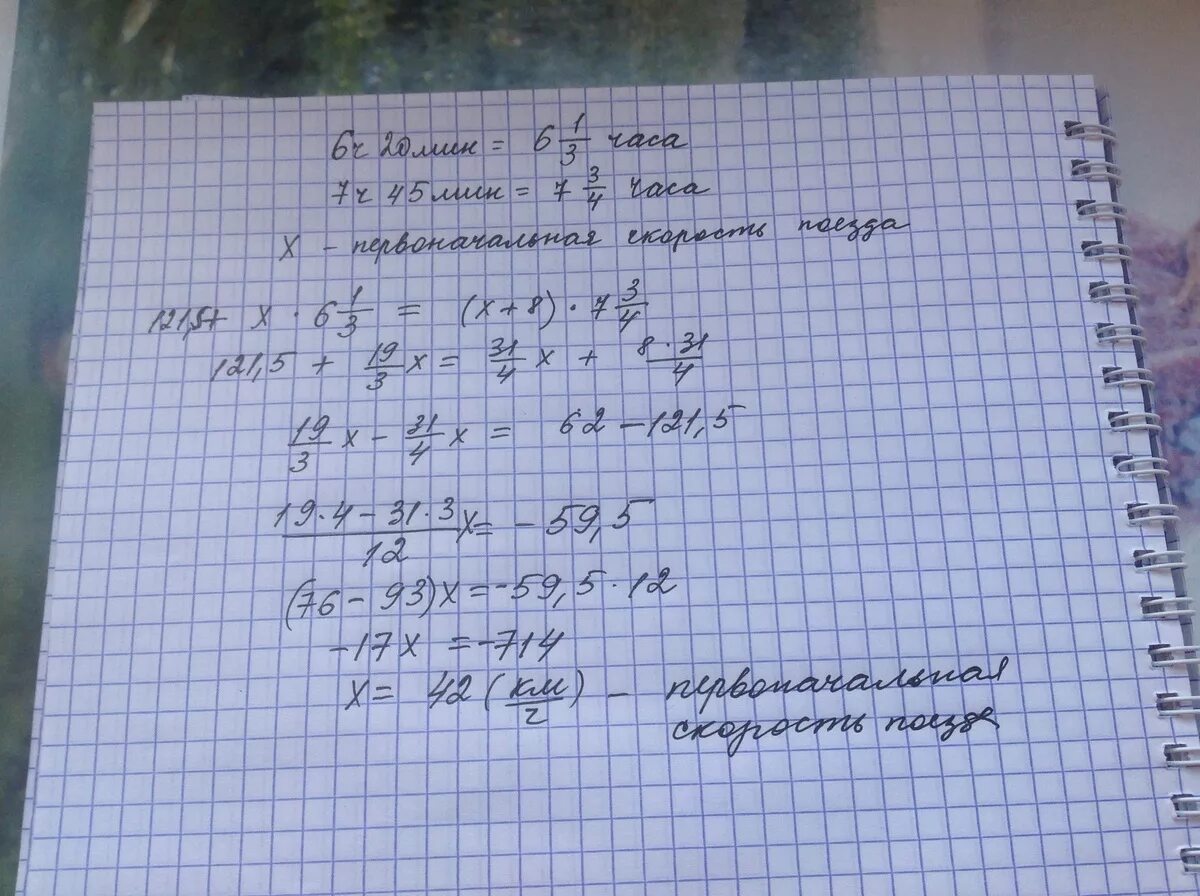 6ч 20мин = 6 1/3 часа
7ч 45мин = 7 3/4 часа
х – первоначальная скорость поезда
121,5+ х · 6 1/3 = (х + 8) · 7 3/4
121,5 + 19/3 х = 31/4 х + 8 · 31/4
19/3 х – 31/4 х = 62 – 121,5
19·4 – 31·3/12 х = – 59,5
(76 – 93)х = –59,5 · 12
–17х = –714
х = 42 (км/ч) – первоначальная
скорость поезда